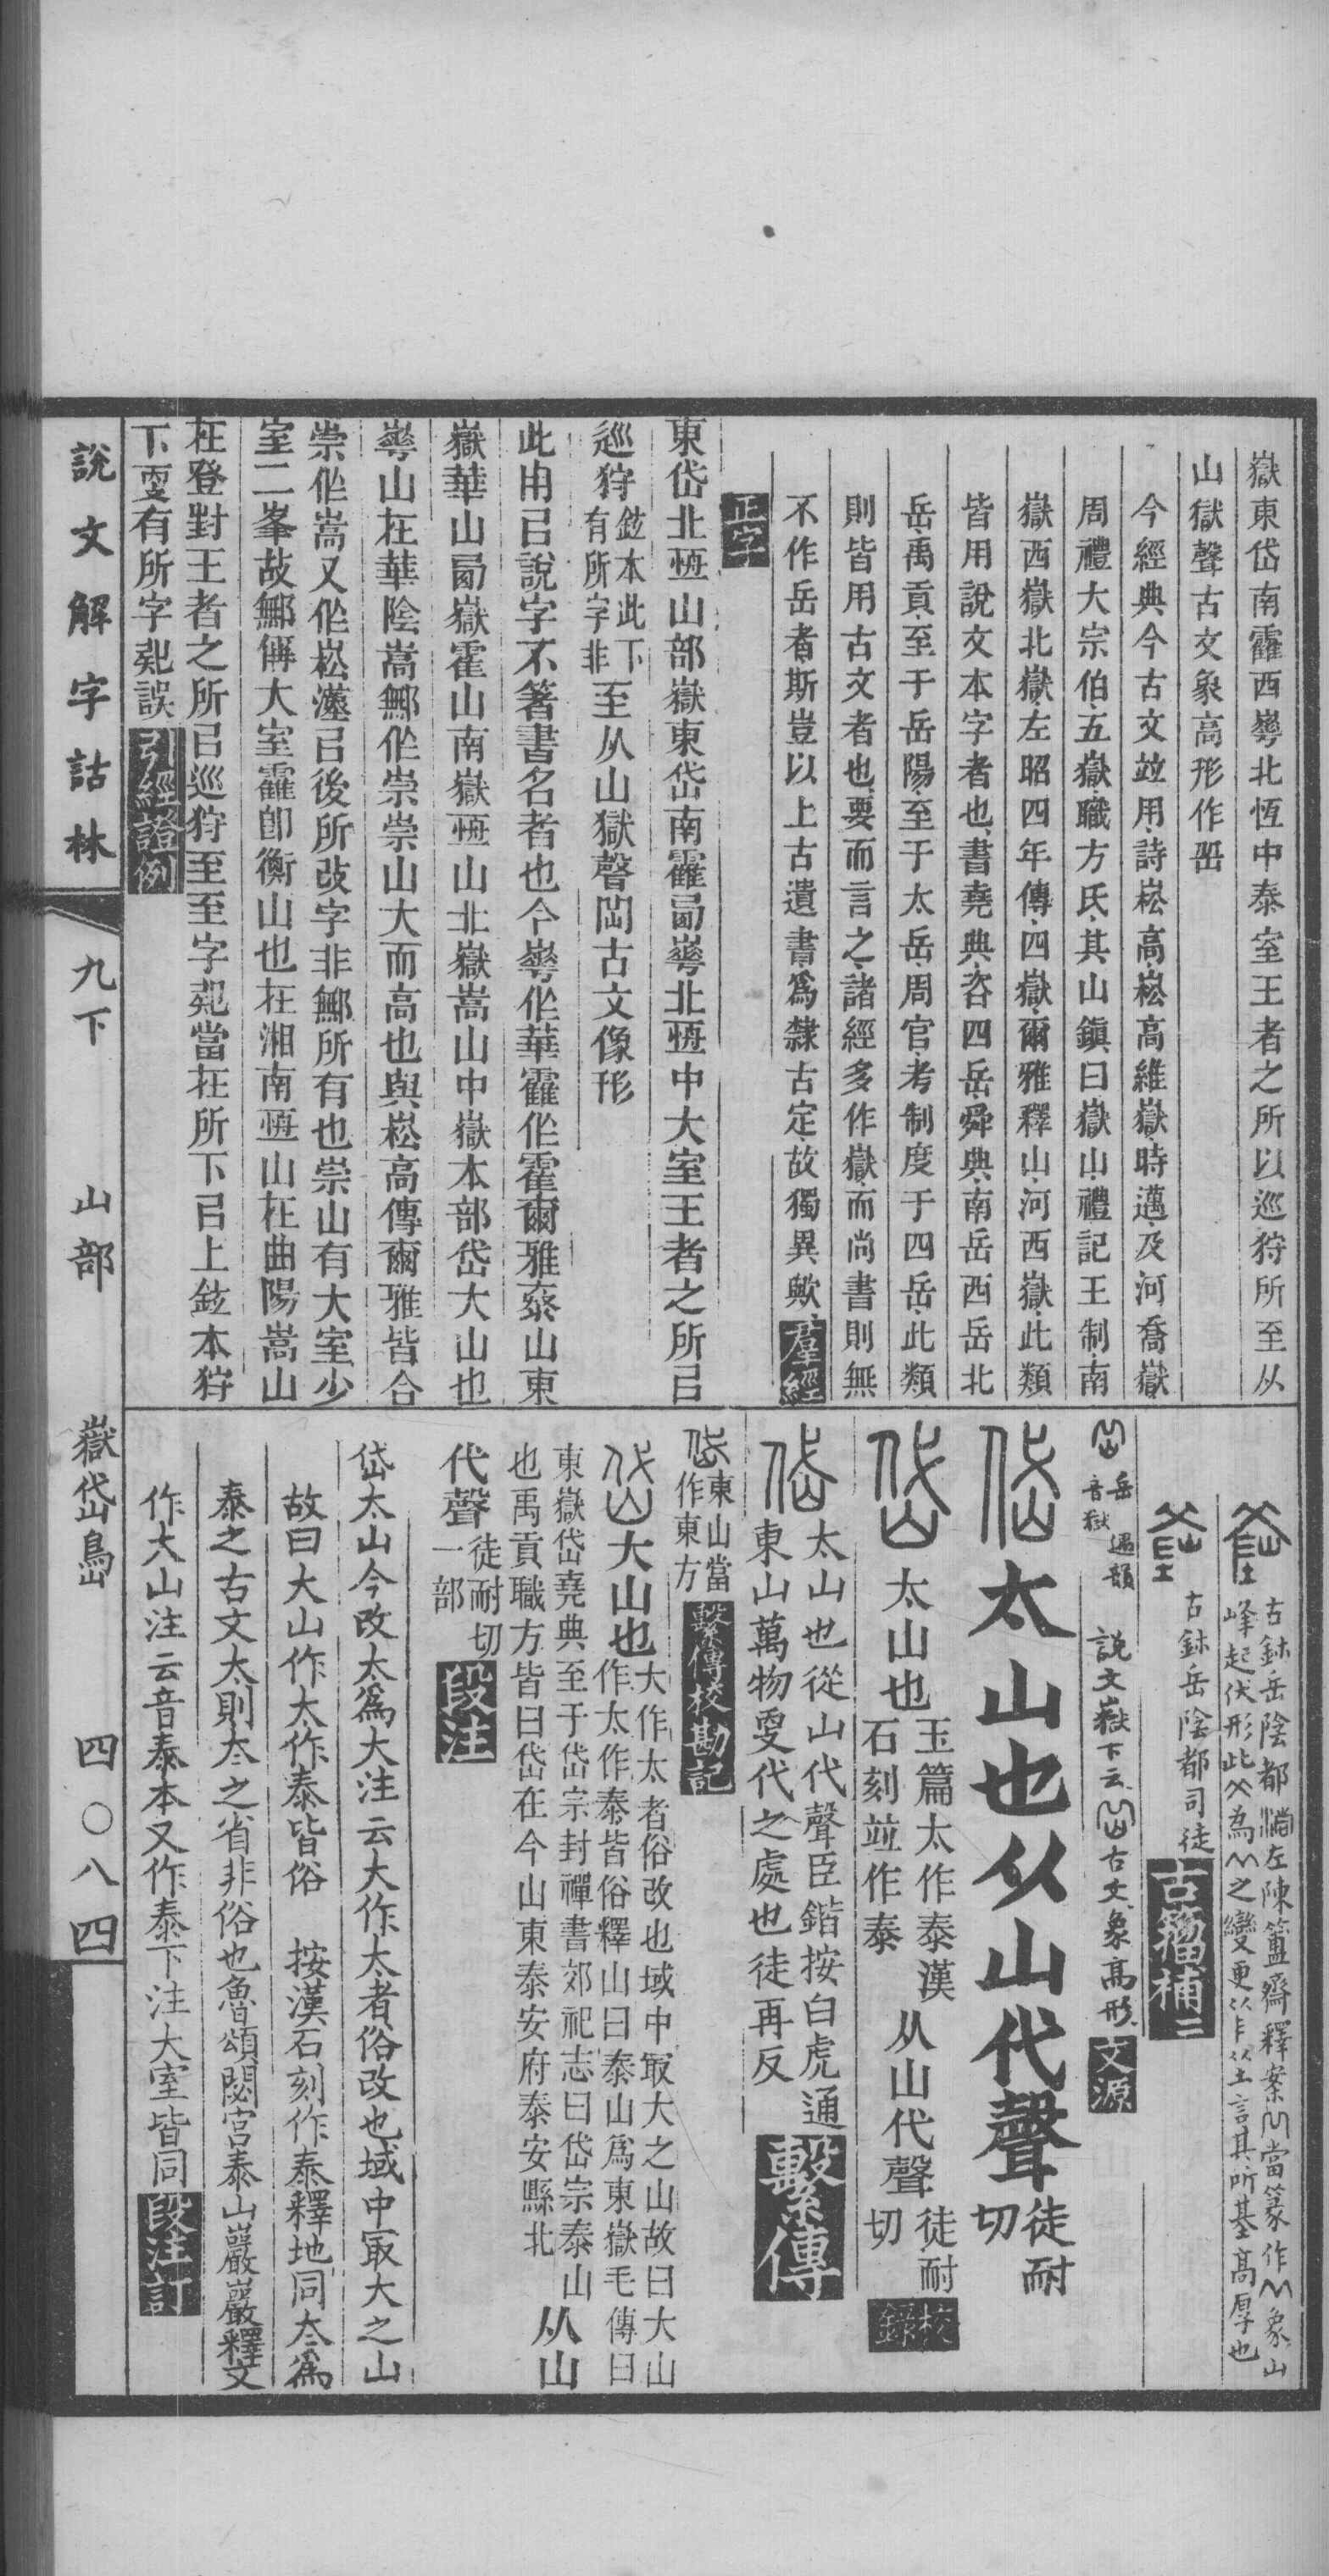 嶽東岱南靃西崋北恆中泰室王者之所以巡狩所至从
山獄聲古文象高形作𡶳
今經典今古文竝用詩崧高崧高維嶽時邁及河喬嶽
周禮大宗伯五嶽職方氏其山鎮曰嶽山禮記王制南
嶽西嶽北嶽左昭四年傳四嶽爾雅釋山河西嶽此類
皆用說文本字者也書堯典咨四岳舜典南岳西岳北
岳禹貢至于岳陽至于太岳周官考制度于四岳此類
則皆用古文者也要而言之諸經多作嶽而尚書則無
不作岳者斯豈以上古遺書爲隸古定故獨異歟羣經
正字
東岱北𢛢山部嶽東岱南靃㢴崋北𢛢中大室王者之所㠯
巡狩鉉本此下
有所字非至从山獄聲𡶳古文像形
此用㠯說字不箸書名者也今崋作華靃作霍爾雅泰山東
嶽華山㢴嶽霍山南嶽𢛢山北嶽嵩山中嶽本部岱大山也
崋山在華陰嵩鄦作崇崇山大而高也與崧高傳爾雅皆合
崇作嵩又作崧漢㠯後所改字非鄦所有也崇山有大室少
室二峯故鄦偁大室靃卽衡山也在湘南𢛢山在曲陽嵩山
在登封王者之所㠯巡狩至至字剙當在所下㠯上鉉本狩
下更有所字剙誤引經證例
古鉨岳陰都左陳簠齋釋案當篆作象山
峰起伏形此爲之變更从非从土言其所基高厚也
古鉨岳陰都司徒古籀補二
岳
音嶽 過韻 說文嶽下云古文象高形文源
太山也从山代聲徒耐
切
太山也玉篇太作泰漢
石刻竝作泰从山代聲徒耐
切校
錄
太山也從山代聲臣鍇按白虎通
東山萬物更代之處也徒再反繫傳
東山當
作東方繫傳校勘記
大山也大作太者俗改也域中冣大之山故曰大山
作太作泰皆俗釋山曰泰山爲東嶽毛傳曰
東嶽岱堯典至于岱宗封禪書郊祀志曰岱宗泰山
也禹貢職方皆曰岱在今山東泰安府泰安縣北从山
代聲徒耐切
一部段注
岱太山今改太爲大注云大作太者俗改也域中冣大之山
故曰大山作太作泰皆俗 按漢石刻作泰釋地同夳爲
泰之古文太則夳之省非俗也魯頌閟宮泰山巖巖釋文
作大山注云音泰本又作泰下注大室皆同段注訂
說文解字詁林 九下 山部 嶽岱島 四〇八四